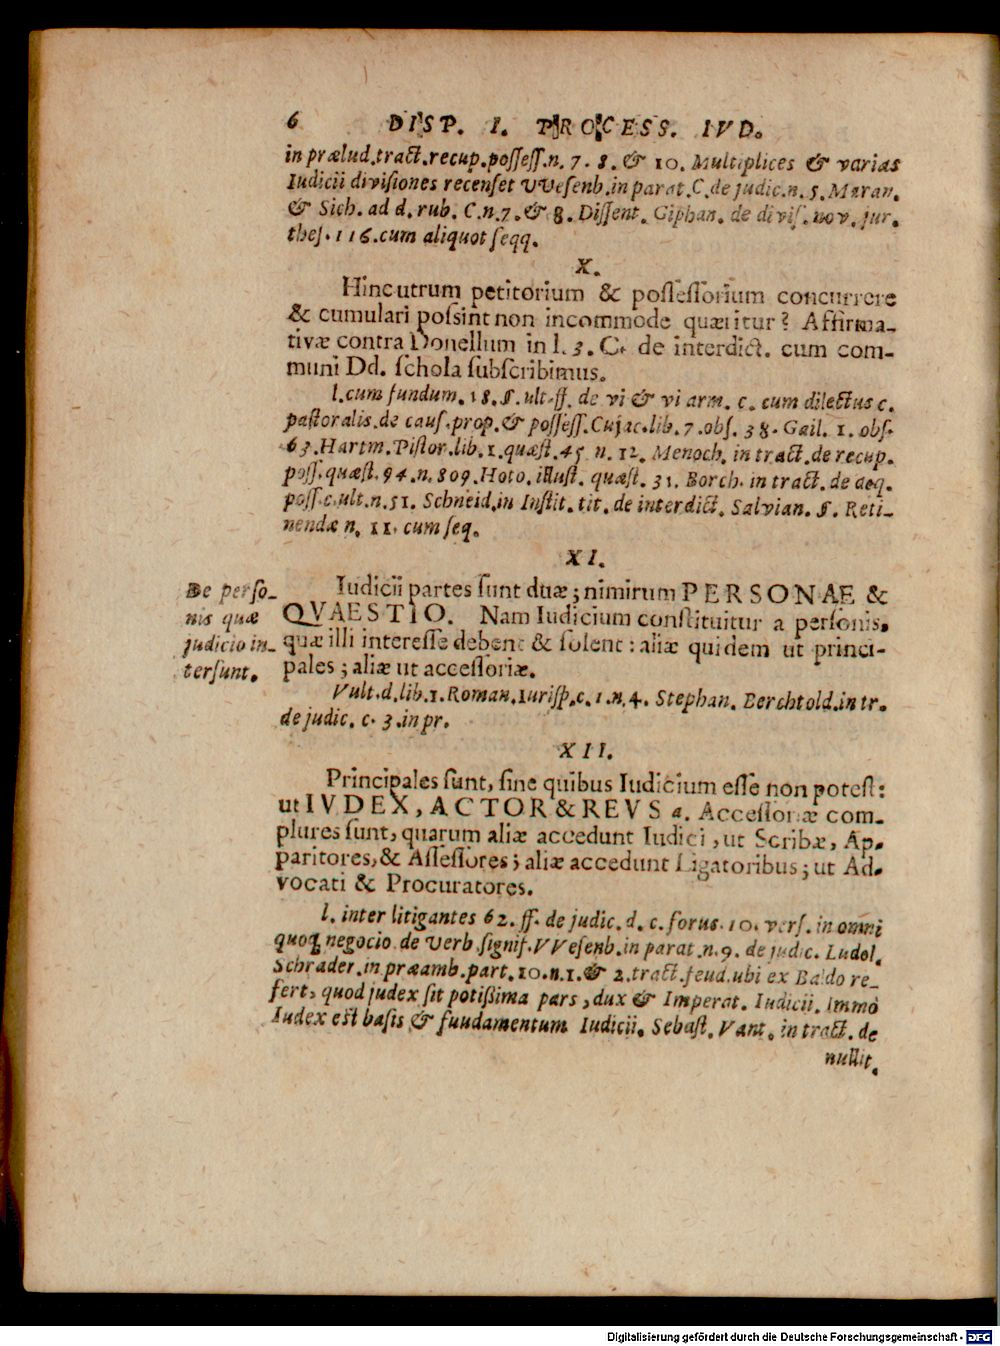 6 DISP. I. PROCESS. IVD.
in prælud.tract.recup.possess.n. 7. 8. & 10. Multiplices & varias
Iudicii divisiones recenset VVesenb.in parat.C.de judic.n. 5. Maran.
& Sich. ad d. rub. C.n.7.& 8. Dissent. Giphan. de divis. nov. jur.
thes. 116.cum aliquot seqq.
X.
Hinc utrum petitorium & possessorium concurrere
& cumulari possint non incommode quæritur? Affirma-
tivæ contra Donellum in l. 3. C. de interdict. cum com-
muni Dd. schola subscribimus.
l.cum fundum. 18. §. ult.ff. de vi & vi arm. c. cum dilectus c.
pastoralis.de caus.prop.& possess.Cujac.lib. 7.obs. 38. Gail. 1. obs.
63.Hartm.Pistor.lib.1.quæst.45. n. 12. Menoch. in tract.de recup.
poss.quæst.94.n.809.Hoto.illust. quæst. 31. Borch. in tract. de acq.
poss.c.ult.n.51. Schneid.in Instit. tit. de interdict. Salvian. §. Reti-
nendæ n. 11. cum seq.
XI.
De perso-
nis quæ
judicio in-
tersunt.
Iudicii partes sunt duæ; nimirum PERSONAE &
QVAESTIO. Nam Iudicium constituitur a personis,
quæ illi interesse debent & solent: aliæ quidem ut princi-
pales; aliæ ut accessoriæ.
Vult.d.lib.1.Roman.Iurisp.c.1.n.4. Stephan. Berchtold.in tr.
de judic. c. 3.in pr.
XII.
Principales sunt, sine quibus Iudicium esse non potest:
ut IVDEX, ACTOR & REVS a. Accessoriæ com-
plures sunt, quarum aliæ accedunt Iudici, ut Scribæ, Ap-
paritores,& Assessores; aliæ accedunt Ligatoribus; ut Ad-
vocati & Procuratores.
l. inter litigantes 62. ff. de judic. d. c. forus. 10. vers. in omni
quoq negocio de verb.signif.VVesenb.in parat.n.9. de judic. Ludol.
Schrader.in præamb.part.10.n.1.& 2.tract.feud.ubi ex Baldo re-
fert, quod judex sit potißima pars, dux & Imperat. Iudicii. Immò
Iudex est basis & fuudamentum Iudicii. Sebast. Vant. in tract. de
nullit.
Digitalisierung gefördert durch die Deutsche Forschungsgemeinschaft - DFG